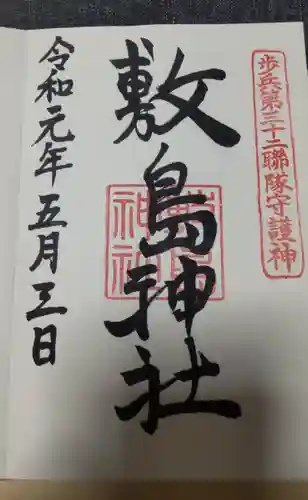 歩兵第三十二聯隊守護神
敷島神社
敷島神社
令和元年五月三日